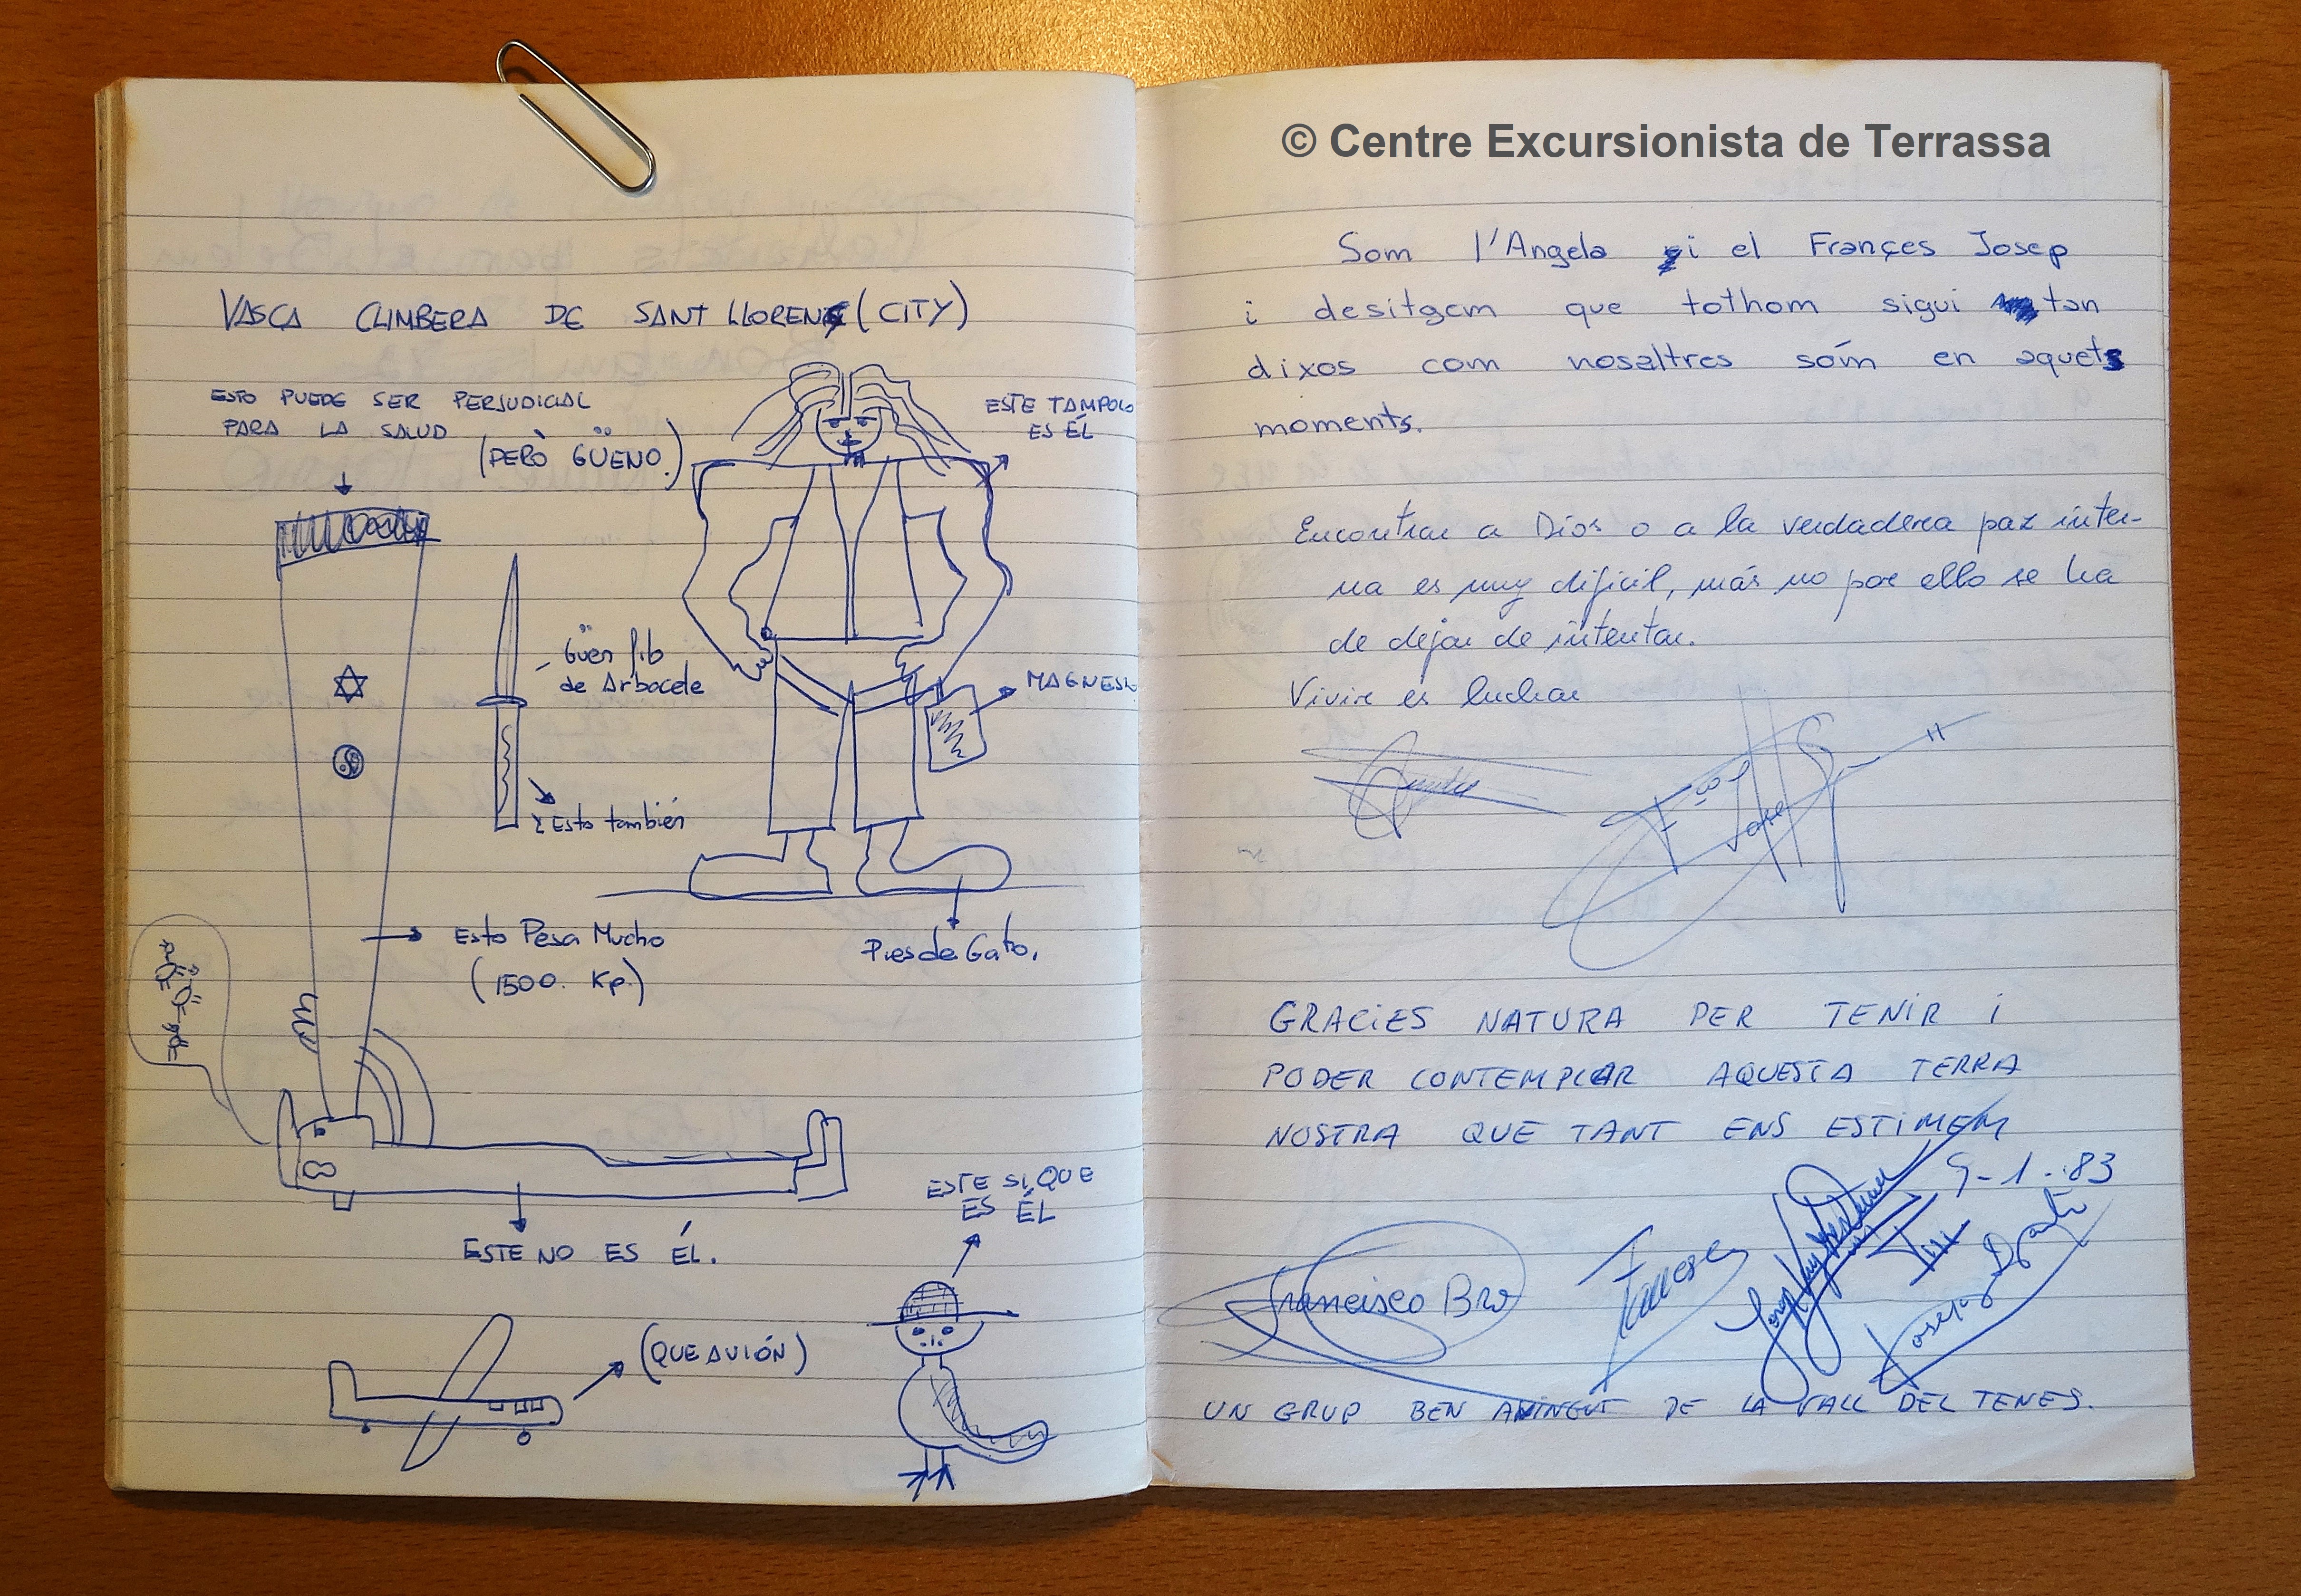 VASCA CLIMBERA DE SANT LLORENÇ (CITY)
ESTO PUEDE SER PERJUDICIAL
PARA LA SALUD
(PERÒ GÜENO.)
ESTE TAMPOLO
ES ÉL
Güen
de Arbacete
Esto también
MAGNESI
Esto Pesa Mucho
(1500. Kp.)
Pies de Gato.
ESTE NO ES ÉL.
ESTE SI, QUE
ES ÉL
(QUE AVIÓN)
© Centre Excursionista de Terrassa
Som l'Angela i el Françes Josep
i desitgem que tothom sigui tan
dixos com nosaltres sóm en aquets
moments.
Encontrar a Dios o a la verdadera paz inter-
na es muy dificil, más no por ello se ha
de dejar de intentar.
Vivir es luchar
GRACIES NATURA PER TENIR i
PODER CONTEMPLAR AQUESTA TERRA
NOSTRA QUE TANT ENS ESTIMEM
9-1-83
Francisco Bro
UN GRUP BEN AVINGUT DE LA VALL DEL TENES.